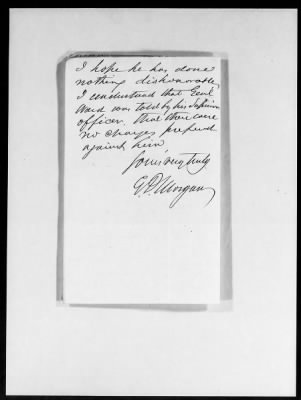 I hope he has done
nothing dishonorable
I understand that Genl
Ward was told by his Superior
officer, that there were
no charges prefered
against him
Yours very truly
E. D. Morgan